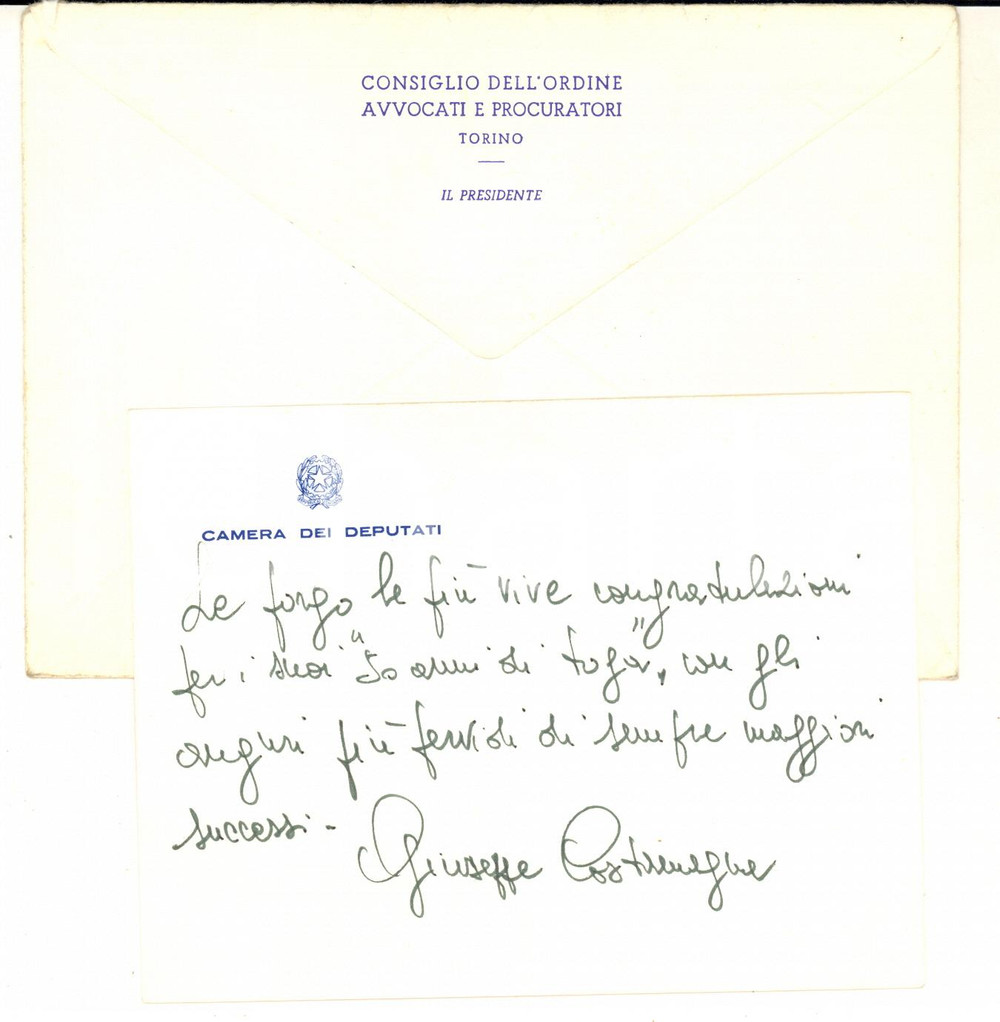 CONSIGLIO DELL'ORDINE
AVVOCATI E PROCURATORI
TORINO
IL PRESIDENTE
CAMERA DEI DEPUTATI
Le porgo le più vive congratulazioni
per i suoi "50 anni di toga", con gli
auguri più fervidi di sempre maggiori
successi -
Giuseppe Costamagna